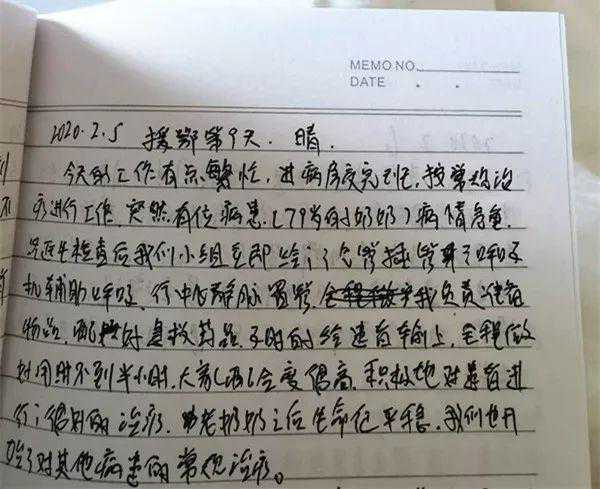 MEMO NO.
DATE . .
2020.2.5 援鄂第9天. 晴.
今天的工作有点繁忙,进病房交完班,按常规治
疗进行工作.突然有位病患(79岁的奶奶)病情危重.
医生检查后我们小组立即给予气管插管呼吸
机辅助呼吸.行中心静脉置管.我负责准备
物品,配好急救药品.及时的给患者输上.全程做
时用时不到半小时.大家配合度很高.积极地对患者进
行了很好的治疗.老奶奶之后生命征平稳.我们也开
始了对其他病患的常规治疗。